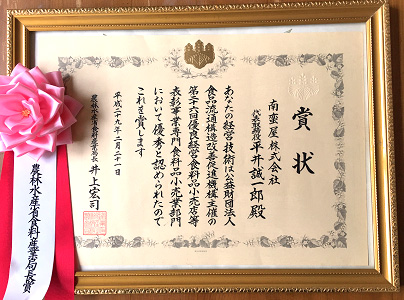 賞状
南蛮屋株式会社
代表取締役 平井誠一郎殿
あなたの経営技術は公益財団法人
食品流通構造改善促進機構主催の
第二十六回優良経営食料品小売店等
表彰事業専門食料品小売業部門
において優秀と認められたので
これを賞します
平成二十九年二月二十一日
農林水産省食料産業局長 井上宏司
農林水産省食料産業局長賞